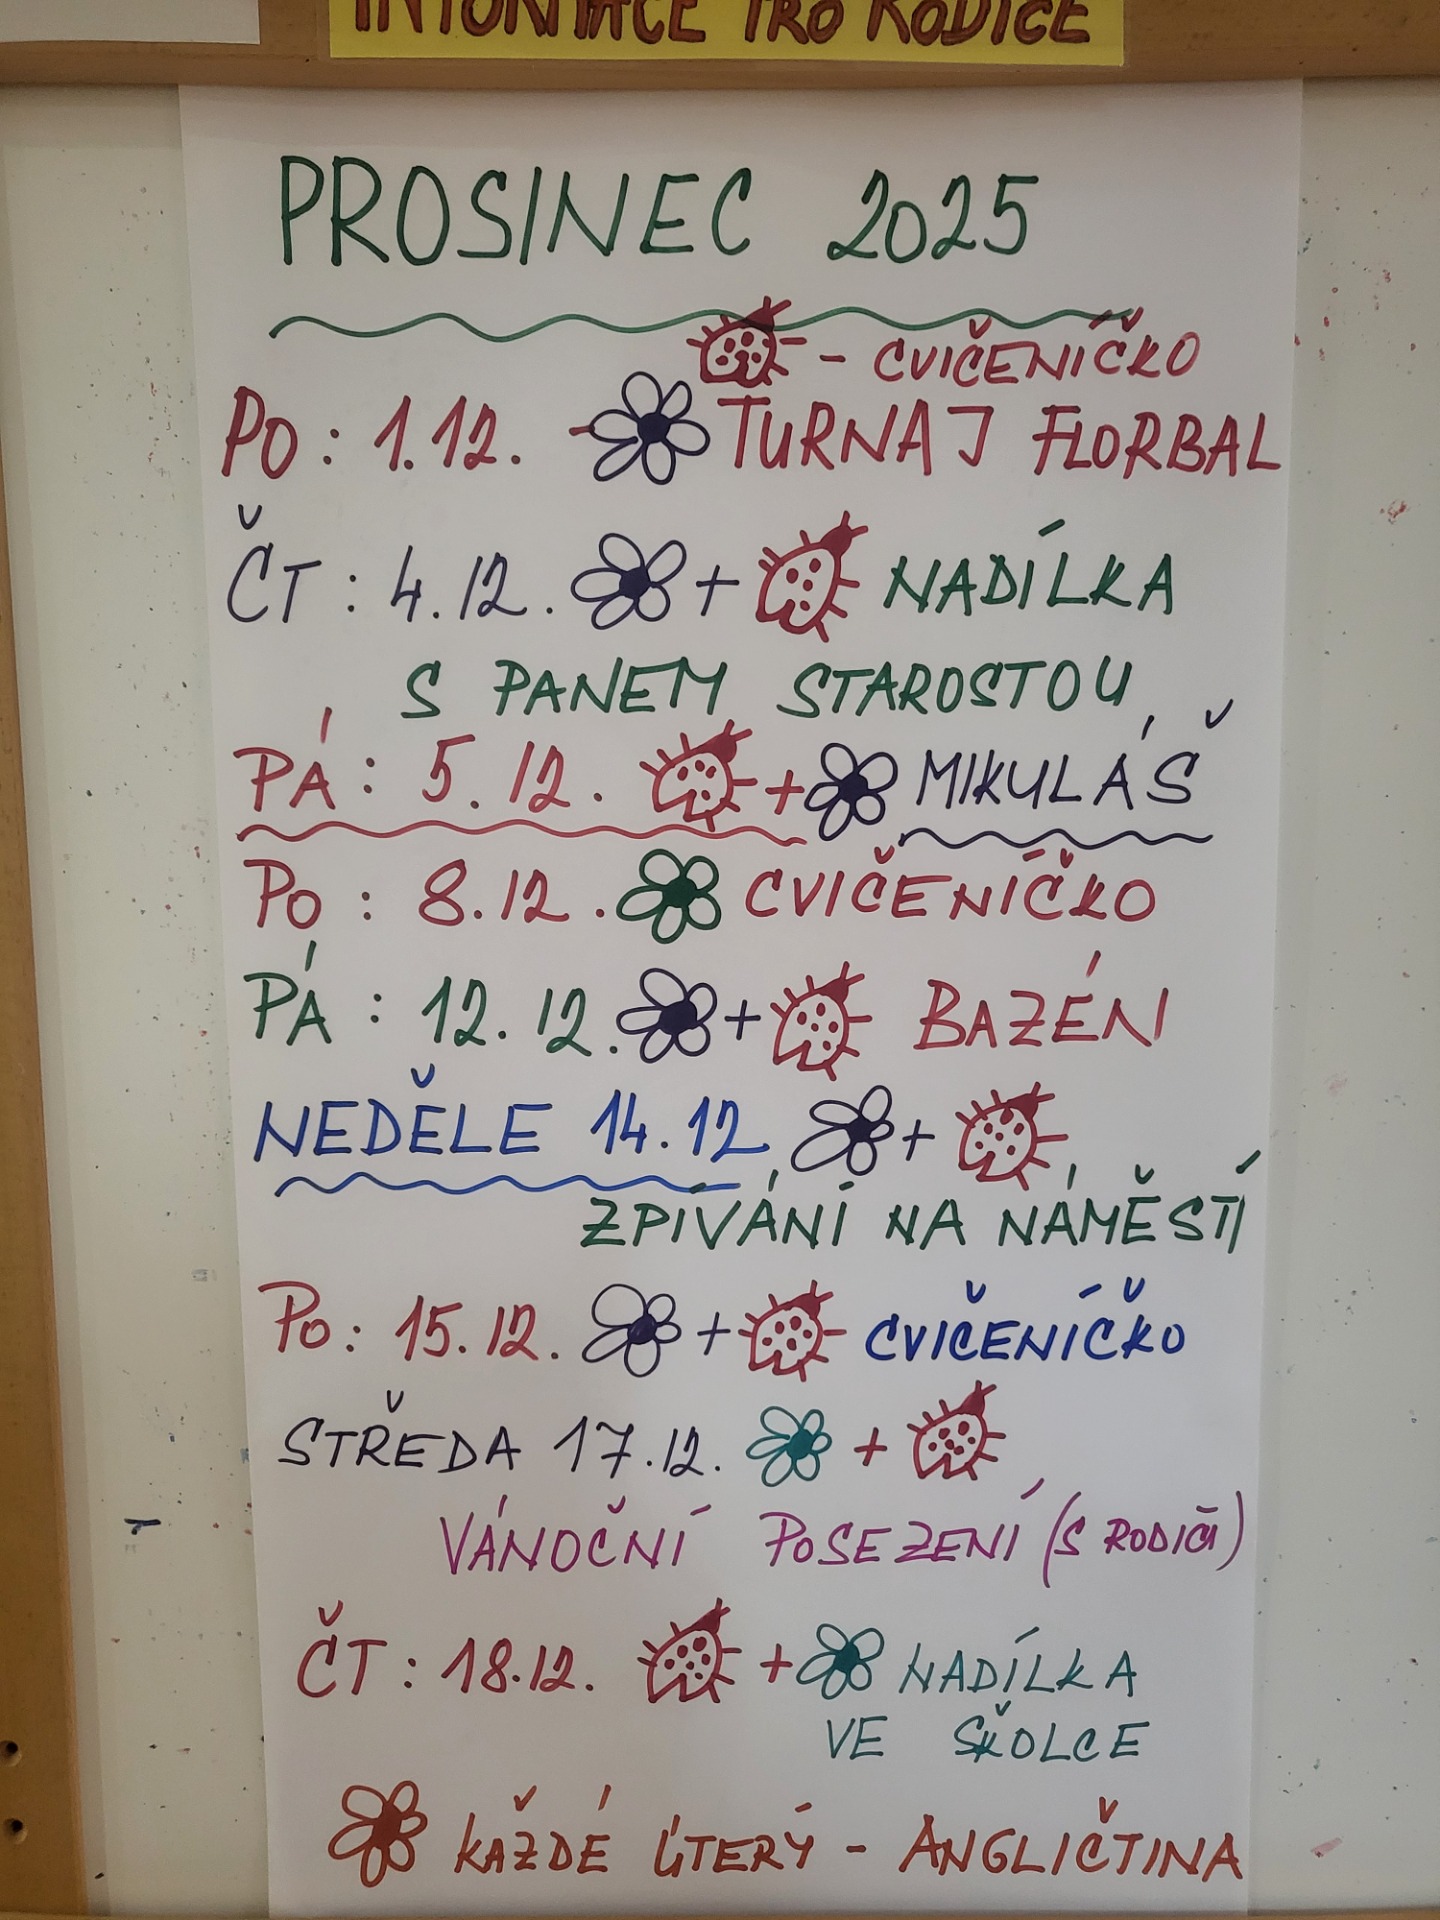 INFORMACE PRO RODIČE
PROSINEC 2025
- CVIČENÍČKO
PO: 1.12. - TURNAJ FLORBAL
ČT: 4.12. + NADÍLKA
S PANEM STAROSTOU
PÁ: 5.12. + MIKULÁŠ
PO: 8.12. CVIČENÍČKO
PÁ: 12.12. + BAZÉN
NEDĚLE 14.12 +
ZPÍVÁNÍ NA NÁMĚSTÍ
PO: 15.12. + CVIČENÍČKO
STŘEDA 17.12. +
VÁNOČNÍ POSEZENÍ (S RODIČI)
ČT: 18.12. + NADÍLKA
VE ŠKOLCE
KAŽDÉ ÚTERÝ - ANGLIČTINA